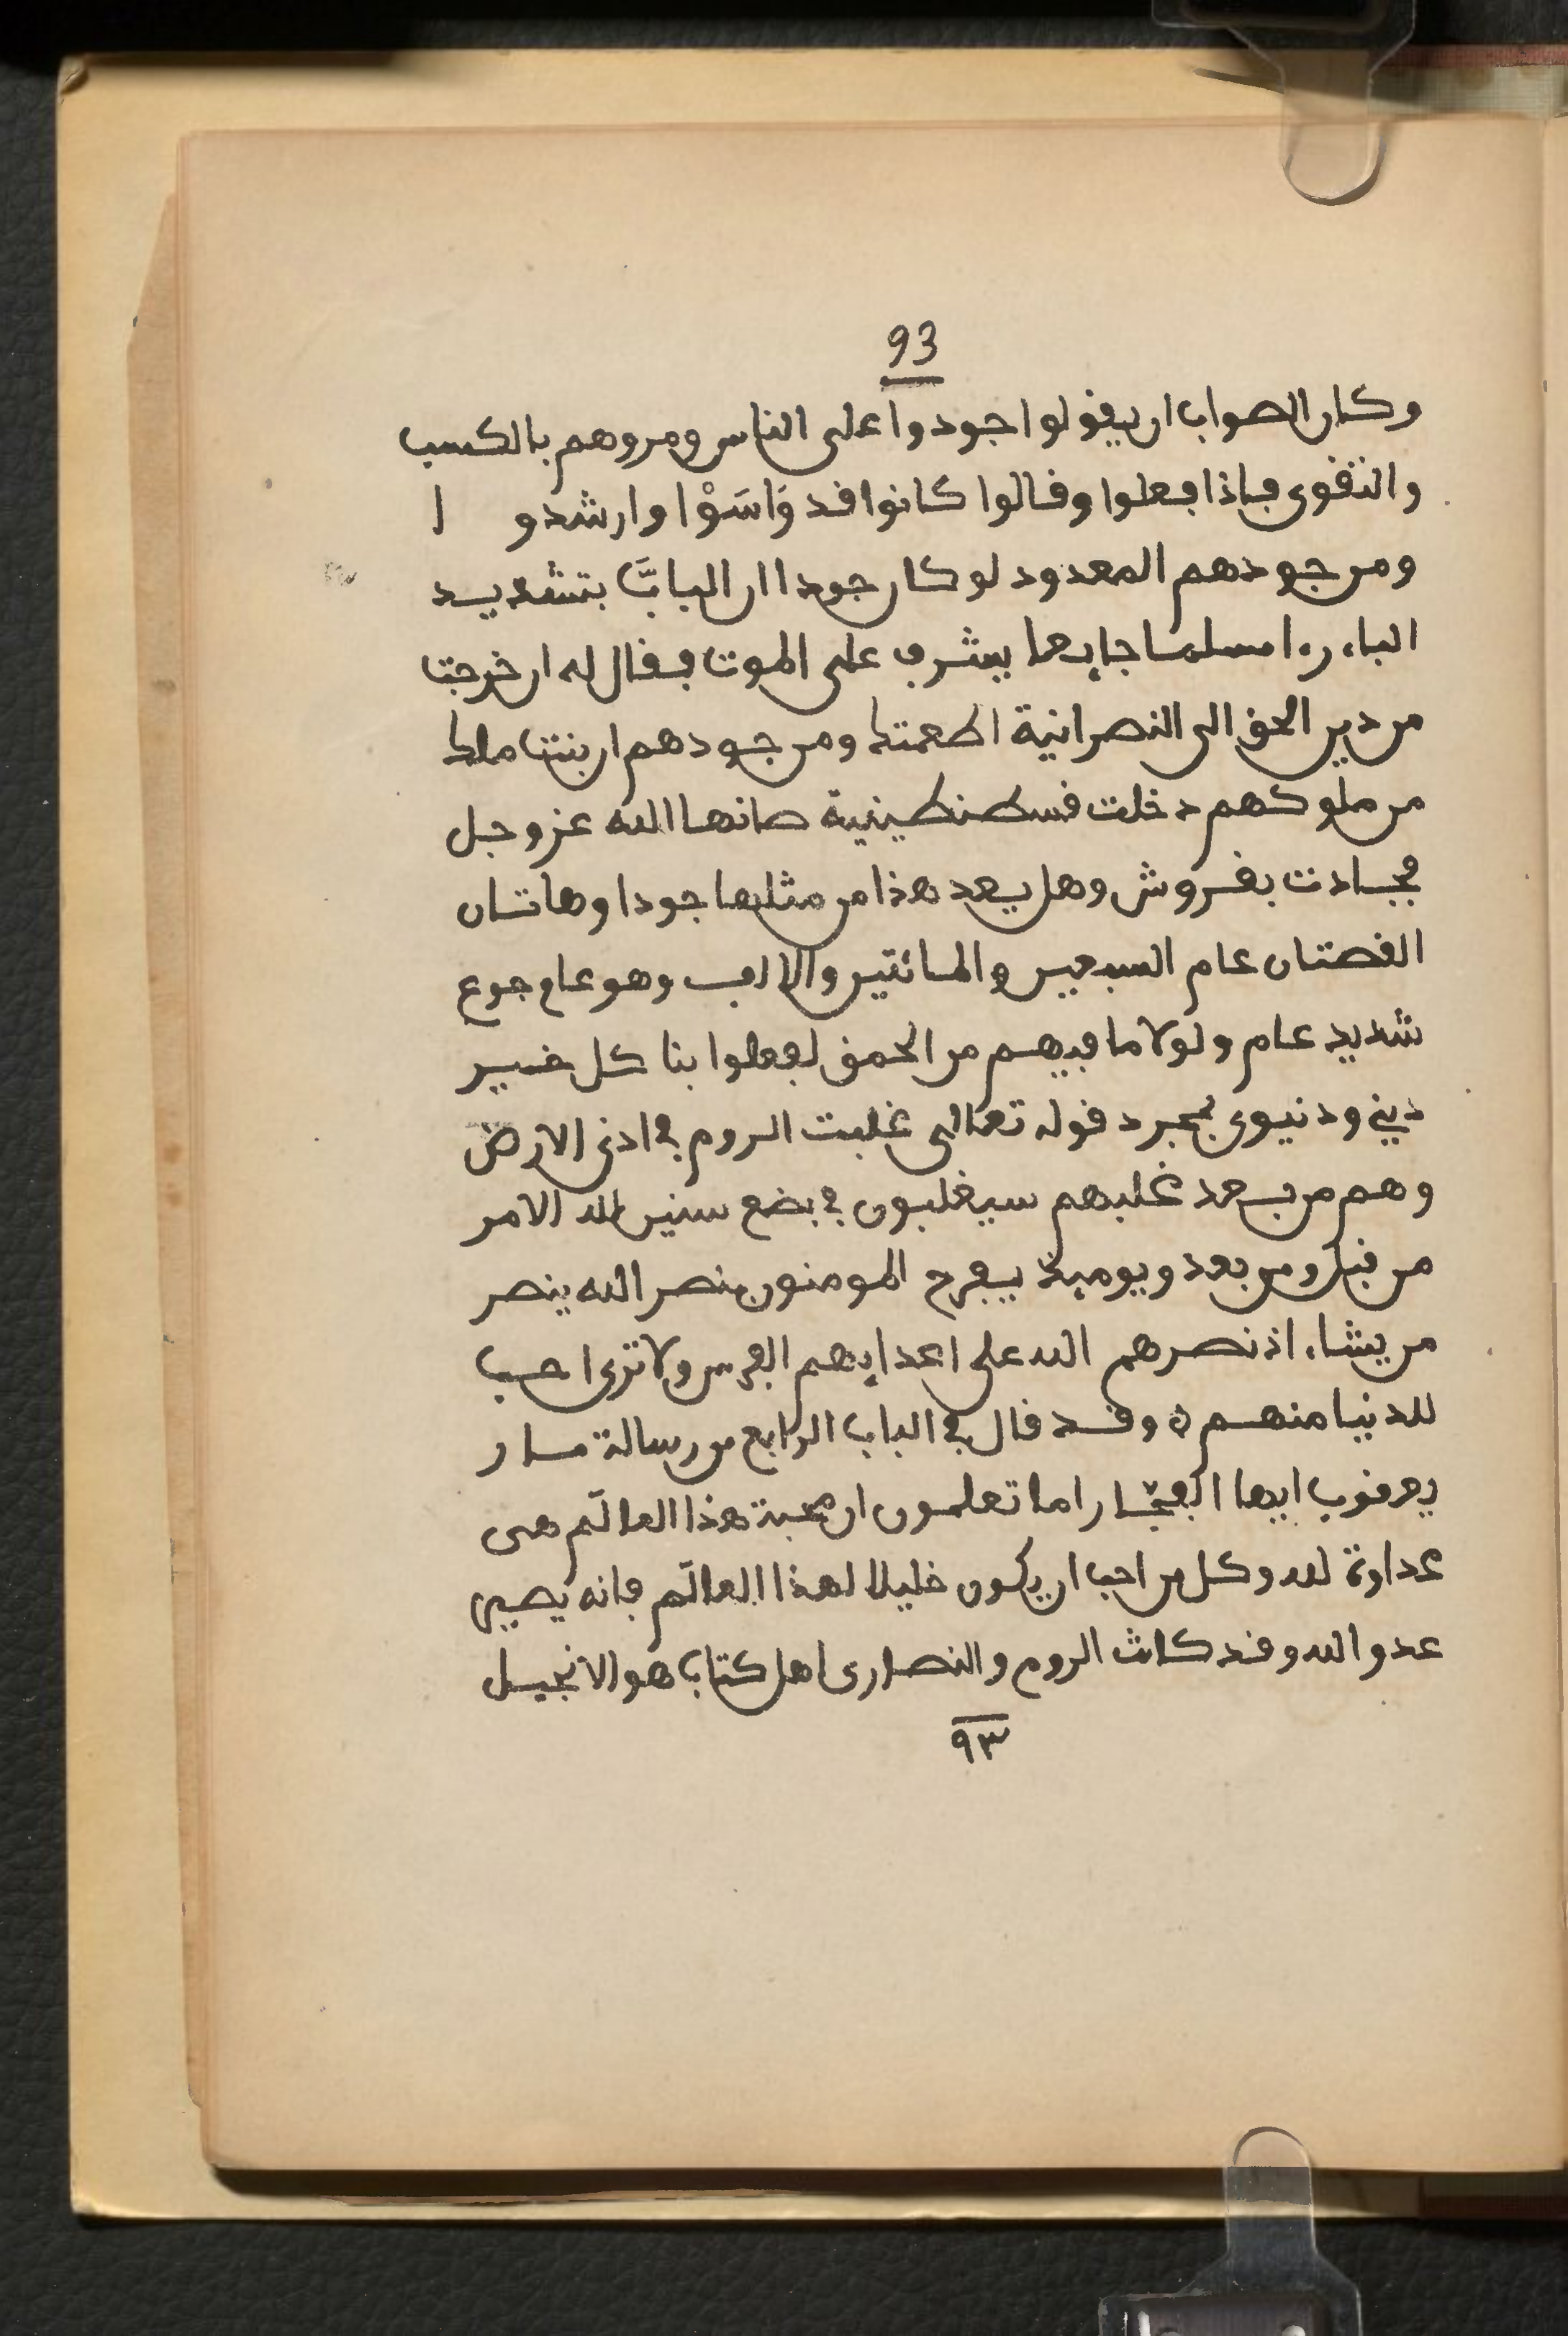 93
وكان الصواب ان يقولوا جودوا على الناس ومروهم بالكسب
والتقوى فإذا فعلوا وقالوا كانوا قد وَاسَوْا وارشدوا
ومن جودهم المعدود لو كان جودا ان البابَّ بتشديد
الباء رءا مسلما جايعا يشرف على الموت فقال له ان خرجت
من دين الحق الى النصرانية اطعمتك ومن جودهم ان بنت ملك
من ملوكهم دخلت قسطنطينية صانها الله عز وجل
فجادت بقروش وهل يعد هذا من مثلها جودا وهاتان
القصتان عام السبعين والمائتين والالف وهو عام جوع
شديد عام ولولا ما فيهم من الحمق لفعلوا بنا كل خير
ديني ودنيوى بمجرد قوله تعالى غلبت الروم في ادنى الارض
وهم من بعد غلبهم سيغلبون في بضع سنين لله الامر
من قبل ومن بعد ويوميذ يفرح المومنون بنصر الله ينصر
من يشاء اذ نصرهم الله على اعدايهم الفرس ولا ترى احب
للدنيا منهم ٥ وقد قال في الباب الرابع من رسالة مار
يعقوب ايها الفجّار اما تعلمون ان محبة هذا العالَم هى
عداوة لله وكل من احب ان يكون خليلا لهذا العالَم فانه يصير
عدو الله وقد كانت الروم والنصارى اهل كتاب هو الانجيل
٩٣